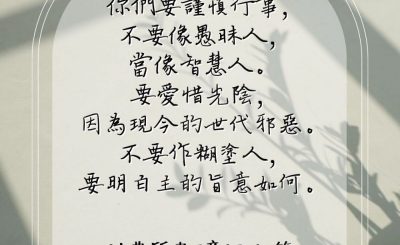 你們要謹慎行事，
不要像愚昧人，
當像智慧人。
要愛惜光陰，
因為現今的世代邪惡。
不要作糊塗人，
要明白主的旨意如何。